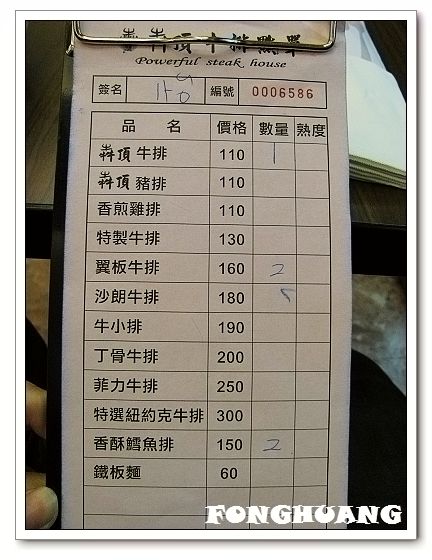 犇頂牛排點單
Powerful steak house
簽名 編號 0006586
品 名 價格 數量 熟度
犇頂牛排 110 1
犇頂豬排 110
香煎雞排 110
特製牛排 130
翼板牛排 160 2
沙朗牛排 180
牛小排 190
丁骨牛排 200
菲力牛排 250
特選紐約克牛排 300
香酥鱈魚排 150 2
鐵板麵 60
FONGHUANG